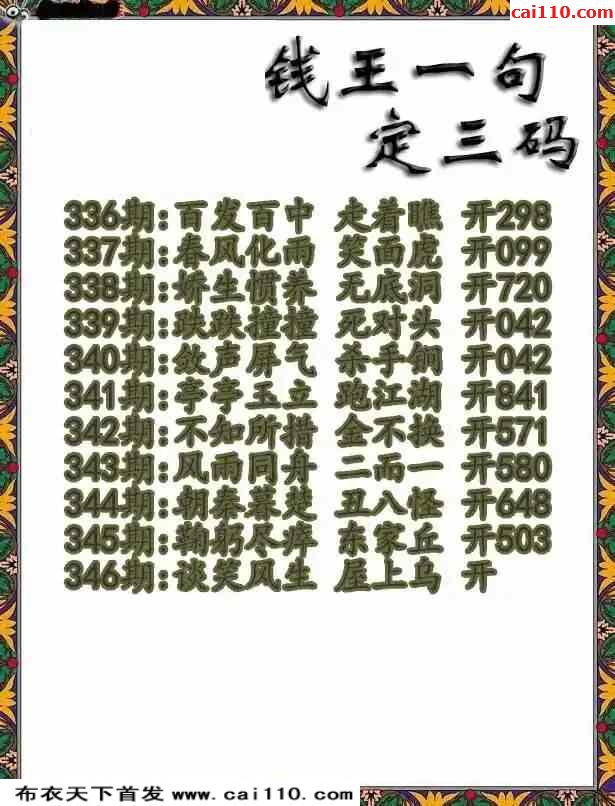 cai110.com
钱王一句
定三码
336期:百发百中 走着瞧 开298
337期:春风化雨 笑面虎 开099
338期:娇生惯养 无底洞 开720
339期:跌跌撞撞 死对头 开042
340期:敛声屏气 杀手锏 开042
341期:亭亭玉立 跑江湖 开841
342期:不知所措 金不换 开571
343期:风雨同舟 二而一 开580
344期:朝秦暮楚 丑八怪 开648
345期:鞠躬尽瘁 东家丘 开503
346期:谈笑风生 屋上乌 开
布衣天下首发 www.cai110.com